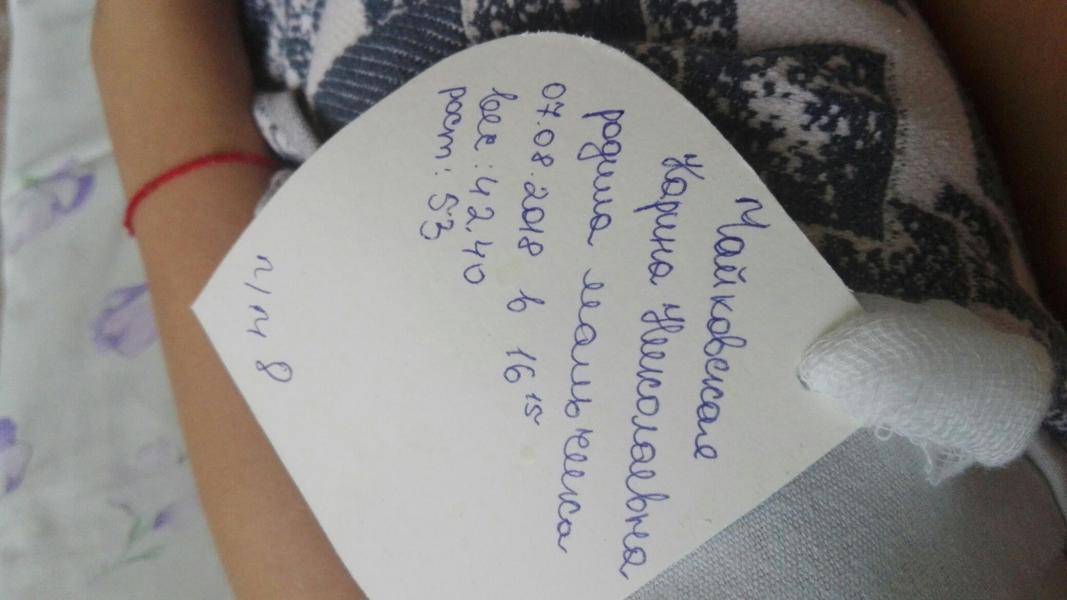 Чайковская
Карина Николаевна
родила мальчика
07.08.2018 в 16 15
вес: 42.40
рост: 53
п/п 8